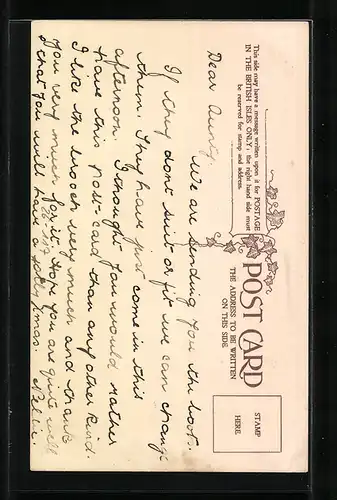 This side may have a message written upon it for POSTAGE
IN THE BRITISH ISLES ONLY; the right hand side must
be reserved for stamp and address.
POST CARD
THE ADDRESS TO BE WRITTEN
ON THIS SIDE.
STAMP
HERE
Dear Aunty,
We are sending you the boots.
If they dont suit or fit we can change
them They have just come in this
afternoon. I thought you would rather
have this post-card than any other kind.
I like the brooch very much and thank
you very much for it. Hope you are quite well
& that you will have a jolly Xmas. Nellie.